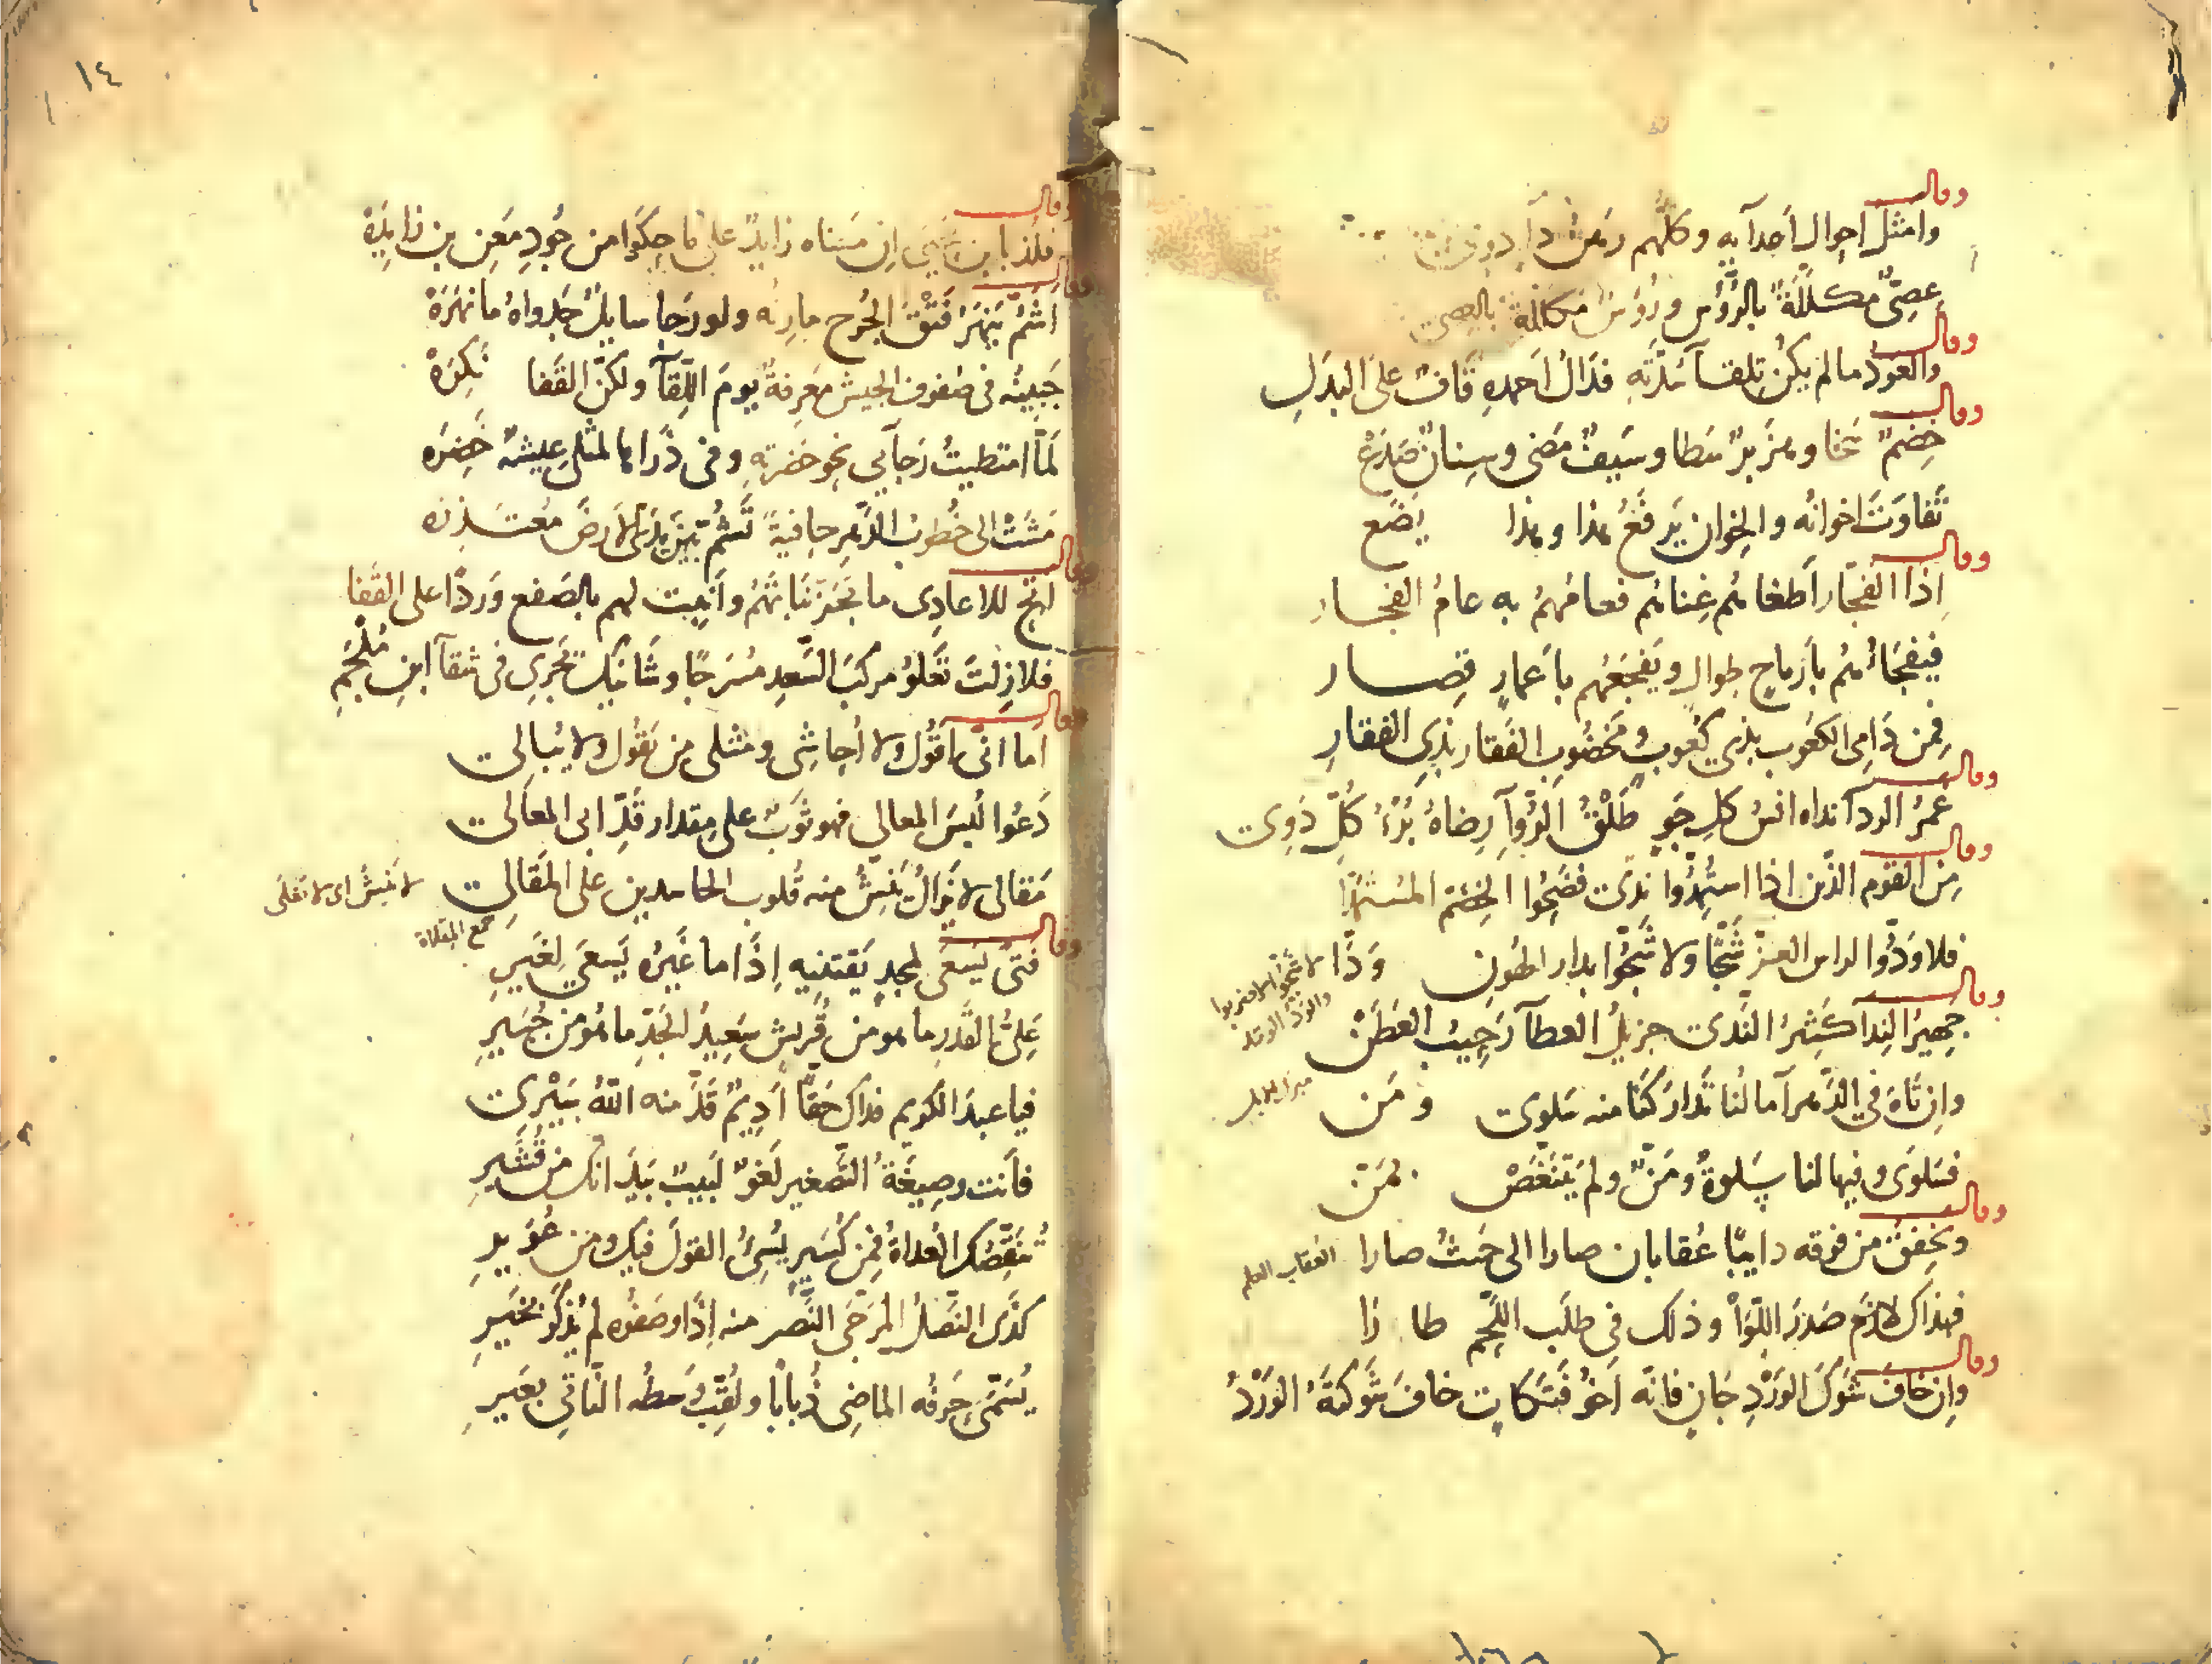 وقال
وامثل احوال اعدآيه وكلهم
عصيٌّ مكلّلةٌ بالرُّؤس ورُؤسٌ مكللةٌ بالعصي
وقال
والعودُ مالم يكن تلفا سُدّته فدالُ احمدهِ قافٌ على البدلِ
وقال
خِضمٌّ سَخا وهِزَبرٌ سَطا وسَيفٌ مَضى وسِنانٌ صَدَعْ
تَفاوَتَ اخوانُه والخِوان يَرفَعُ هذا وهذا يَضَع
وقال
اِذا الفجّار اَطغاهُم غِناهُم فعامُهمُ به عامُ الفجار
فيفجَاءُهُم باَرماحٍ طوالٍ ويَفجَعُهم باَعمارٍ قِصار
فمن دَامِى الكعُوب بذى كُعوبٍ ومخضُوبِ الفَقار بذِى الفقارِ
وقال
غَمرُ الردآ نداه انسُ كلِ جَوٍ طَلْقُ الرُّوآ رِضاهُ بُرْءُ كُلِّ دَوِى
وقال
مِنَ القوم الذّين اذا استُهِدُّوا ندًى فضَحُوا الخِضَمّ المُستَمدّا
فلا ودُّوا لراس العِزّ شَجًّا ولا شَجُّوا بدار الهُونِ وَدَّا
لا شجوا اى لا ضربوا والودّ الوتد
وقال
جهيرُ النِدا كَثِيرُ النَدى جزيلُ العطآ رَحِيبُ العَطَنْ
واِن تاهَ في الدَّهر آمالُنا تَدارَكنَا منه سَلوى ومَن
فسَلوَى وفيها لنا سَلوةٌ ومَنٌّ ولم يَتَنغَّصْ بمَنّ
وقال
وتخفِقُ من فوقه دايبًا عُقابان صارا الى حَيثُ صارا
العُقاب العلم
فهذاك لازَم صَدرَ اللّوَآ وذلك فى طلَب اللّحم طارا
وقال
واِن خافَ شَوكَ الوَرْدِ جَانٍ فانّه اَخو فَتَكاتٍ خافَ شَوكتَهُ الوَرْدُ
١٤
وقال
فلُذ بابن يحيى اِن مَسناه زايدٌ على ما حَكَوا من جُودِ مَعن بن زايِدَةْ
وقال
اشمُّ يَنهَرُ فَتْقَ الجُرح مارِنُه ولو رَجا سايلٌ جَدواهُ ما نهَرَهْ
جَبينُه فى صُفوف الجيش مَعرِفةٌ يومَ اللِّقآ ولكنّ القَفا نكِرَهْ
لَمّا امتطيتُ رَجآيى نحو حَضرتِه وفى ذَراها لمثلى عِيشةٌ خَضِرَه
مَشَتْ الى خُطوبُ الدَّهرِ حافيةً تَشُمّ بَينَ يَدَىَّ الارضَ معتَذِرَه
وقال
فلا زِلتَ تَعلُو مركبَ السَّعدِ مُسْرَجًا وشانيك يجرِى فى شقآ ابنِ مُلْجَمِ
وقال
اما انّى اَقُول ولا اُحاشِى ومثلى من يَقُول ولا يُبالى
دَعُوا لُبسَ المعالى فهو ثَوبٌ على مِقدار قَدِّ ابى المعَالى
مَقالى لا يَزالُ يَنِشُّ منه قُلوب الحاسدين على المَقالى
لا ينشُّ اى لا تغلى
جمع المقلاة
وقال
فتًى يَسعَى لمجدٍ يَقتنيهِ اِذَا ما غَيرُه يَسعَى لِغَيرِ
عَلِىُّ القَدرِ ما هو من قُريش سَعِيدُ الجَدِّ ما هُو من جُبَيرِ
فيا عبدَ الكريم فداك حَقًّا اَدِيمٌ قَدَّ منه اللهُ سَيْرِى
فاَنت وصِيغَةُ التَّصغير لَغوٌ لَبيبٌ بَيدَ انّك من قُشَيرِ
تُنقِّصُك العُداةُ فمِن كُسَيرٍ يُسِئُ القولَ فيك ومن عُوَيرِ
كذَى النَّصلُ المُرَجّى النَّصرِ منه اِذَا وصَفوُه لم يُذكَر بخَيرِ
يُسَمَّى حَرفُه الماضِى ذُبابًا ولُقِّبَ وَسطُه النّاتِى بعَيرِ